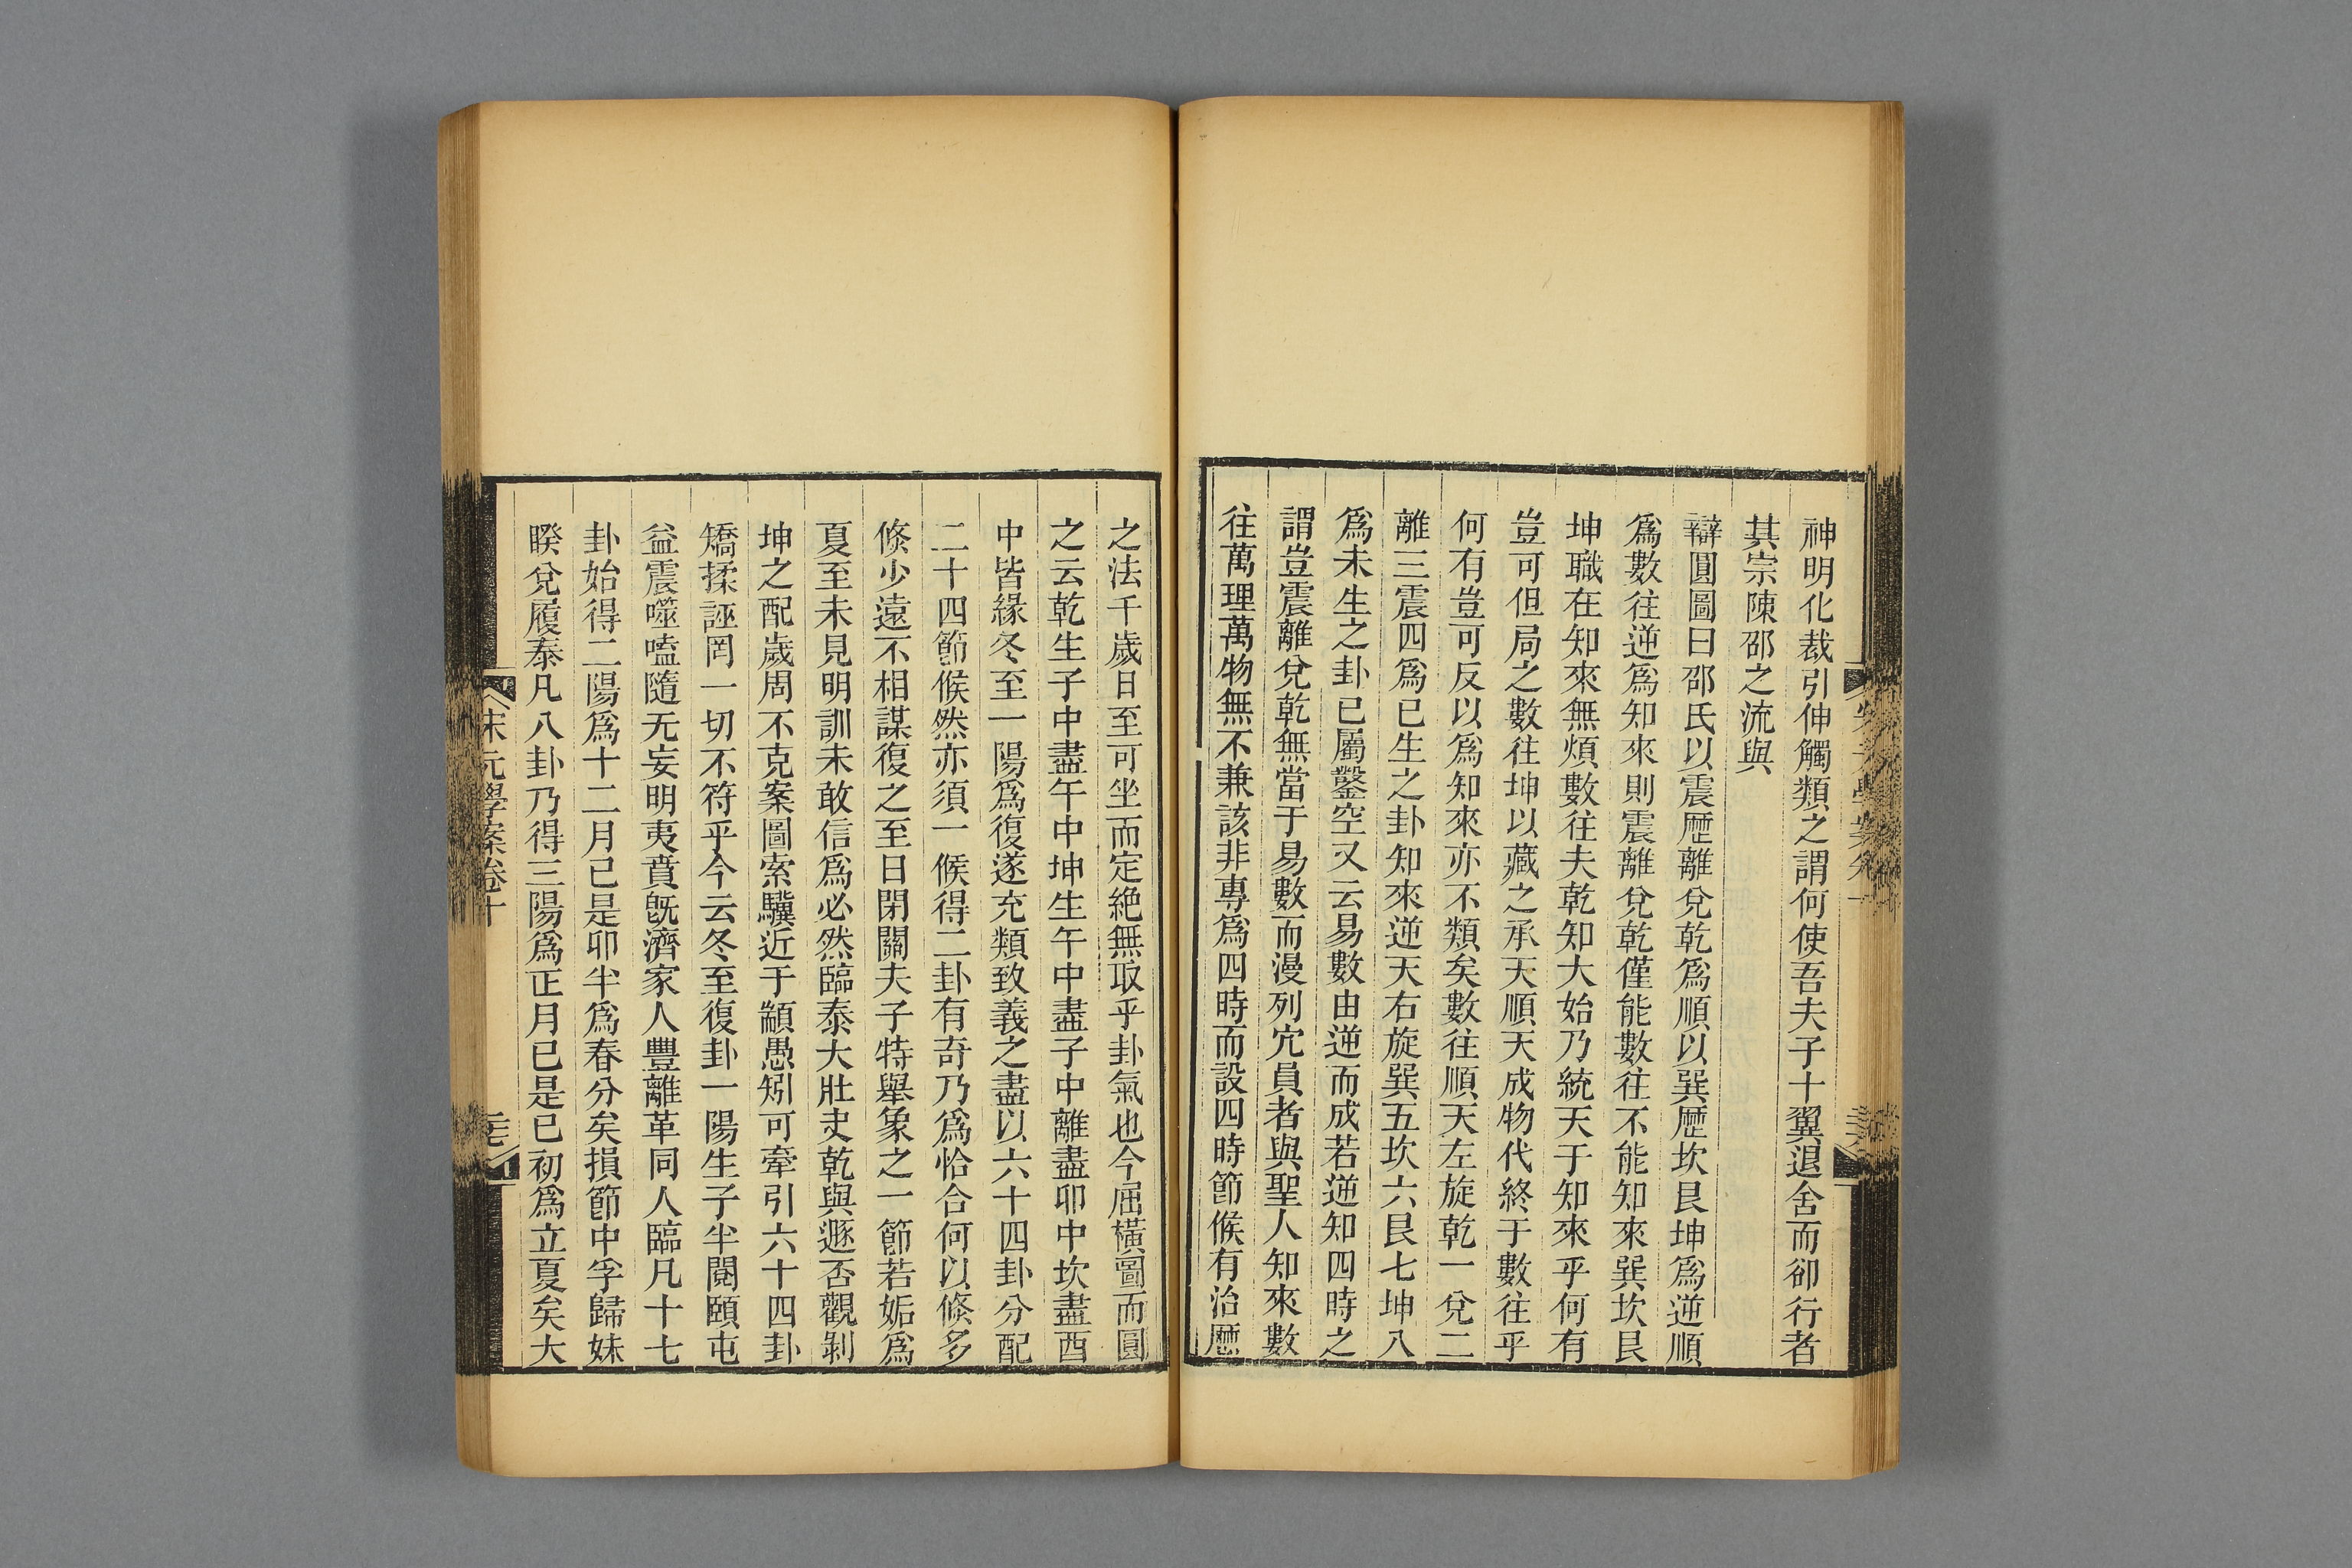 神明化裁引伸觸類之謂何使吾夫子十翼退舍而卻行者
其宗陳邵之流與
辯圓圖曰邵氏以震歷離兌乾爲順以巽歷坎艮坤爲逆順
爲數往逆爲知來則震離兌乾僅能數往不能知來巽坎艮
坤職在知來無煩數往夫乾知大始乃統天于知來乎何有
豈可但局之數往坤以藏之承天順天成物代終于數往乎
何有豈可反以爲知來亦不類矣數往順天左旋乾一兌二
離三震四爲已生之卦知來逆天右旋巽五坎六艮七坤八
爲未生之卦已屬鑿空又云易數由逆而成若逆知四時之
謂豈震離兌乾無當于易數而漫列冗員者與聖人知來數
往萬理萬物無不兼該非專爲四時而設四時節候有治歷
之法千歲日至可坐而定絕無取乎卦氣也今屈橫圖而圓
之云乾生子中盡午中坤生午中盡子中離盡卯中坎盡酉
中皆緣冬至一陽爲復遂充類致義之盡以六十四卦分配
二十四節候然亦須一候得二卦有奇乃爲恰合何以條多
條少遠不相謀復之至日閉關夫子特舉象之一節若姤爲
夏至未見明訓未敢信爲必然臨泰大壯夬乾與遯否觀剝
坤之配歲周不克案圖索驥近于顓愚矧可牽引六十四卦
矯揉誣罔一切不符乎今云冬至復卦一陽生子半閱頤屯
益震噬嗑隨无妄明夷賁旣濟家人豐離革同人臨凡十七
卦始得二陽爲十二月已是卯半爲春分矣損節中孚歸妹
睽兌履泰凡八卦乃得三陽爲正月已是巳初爲立夏矣大
宋元學案卷十